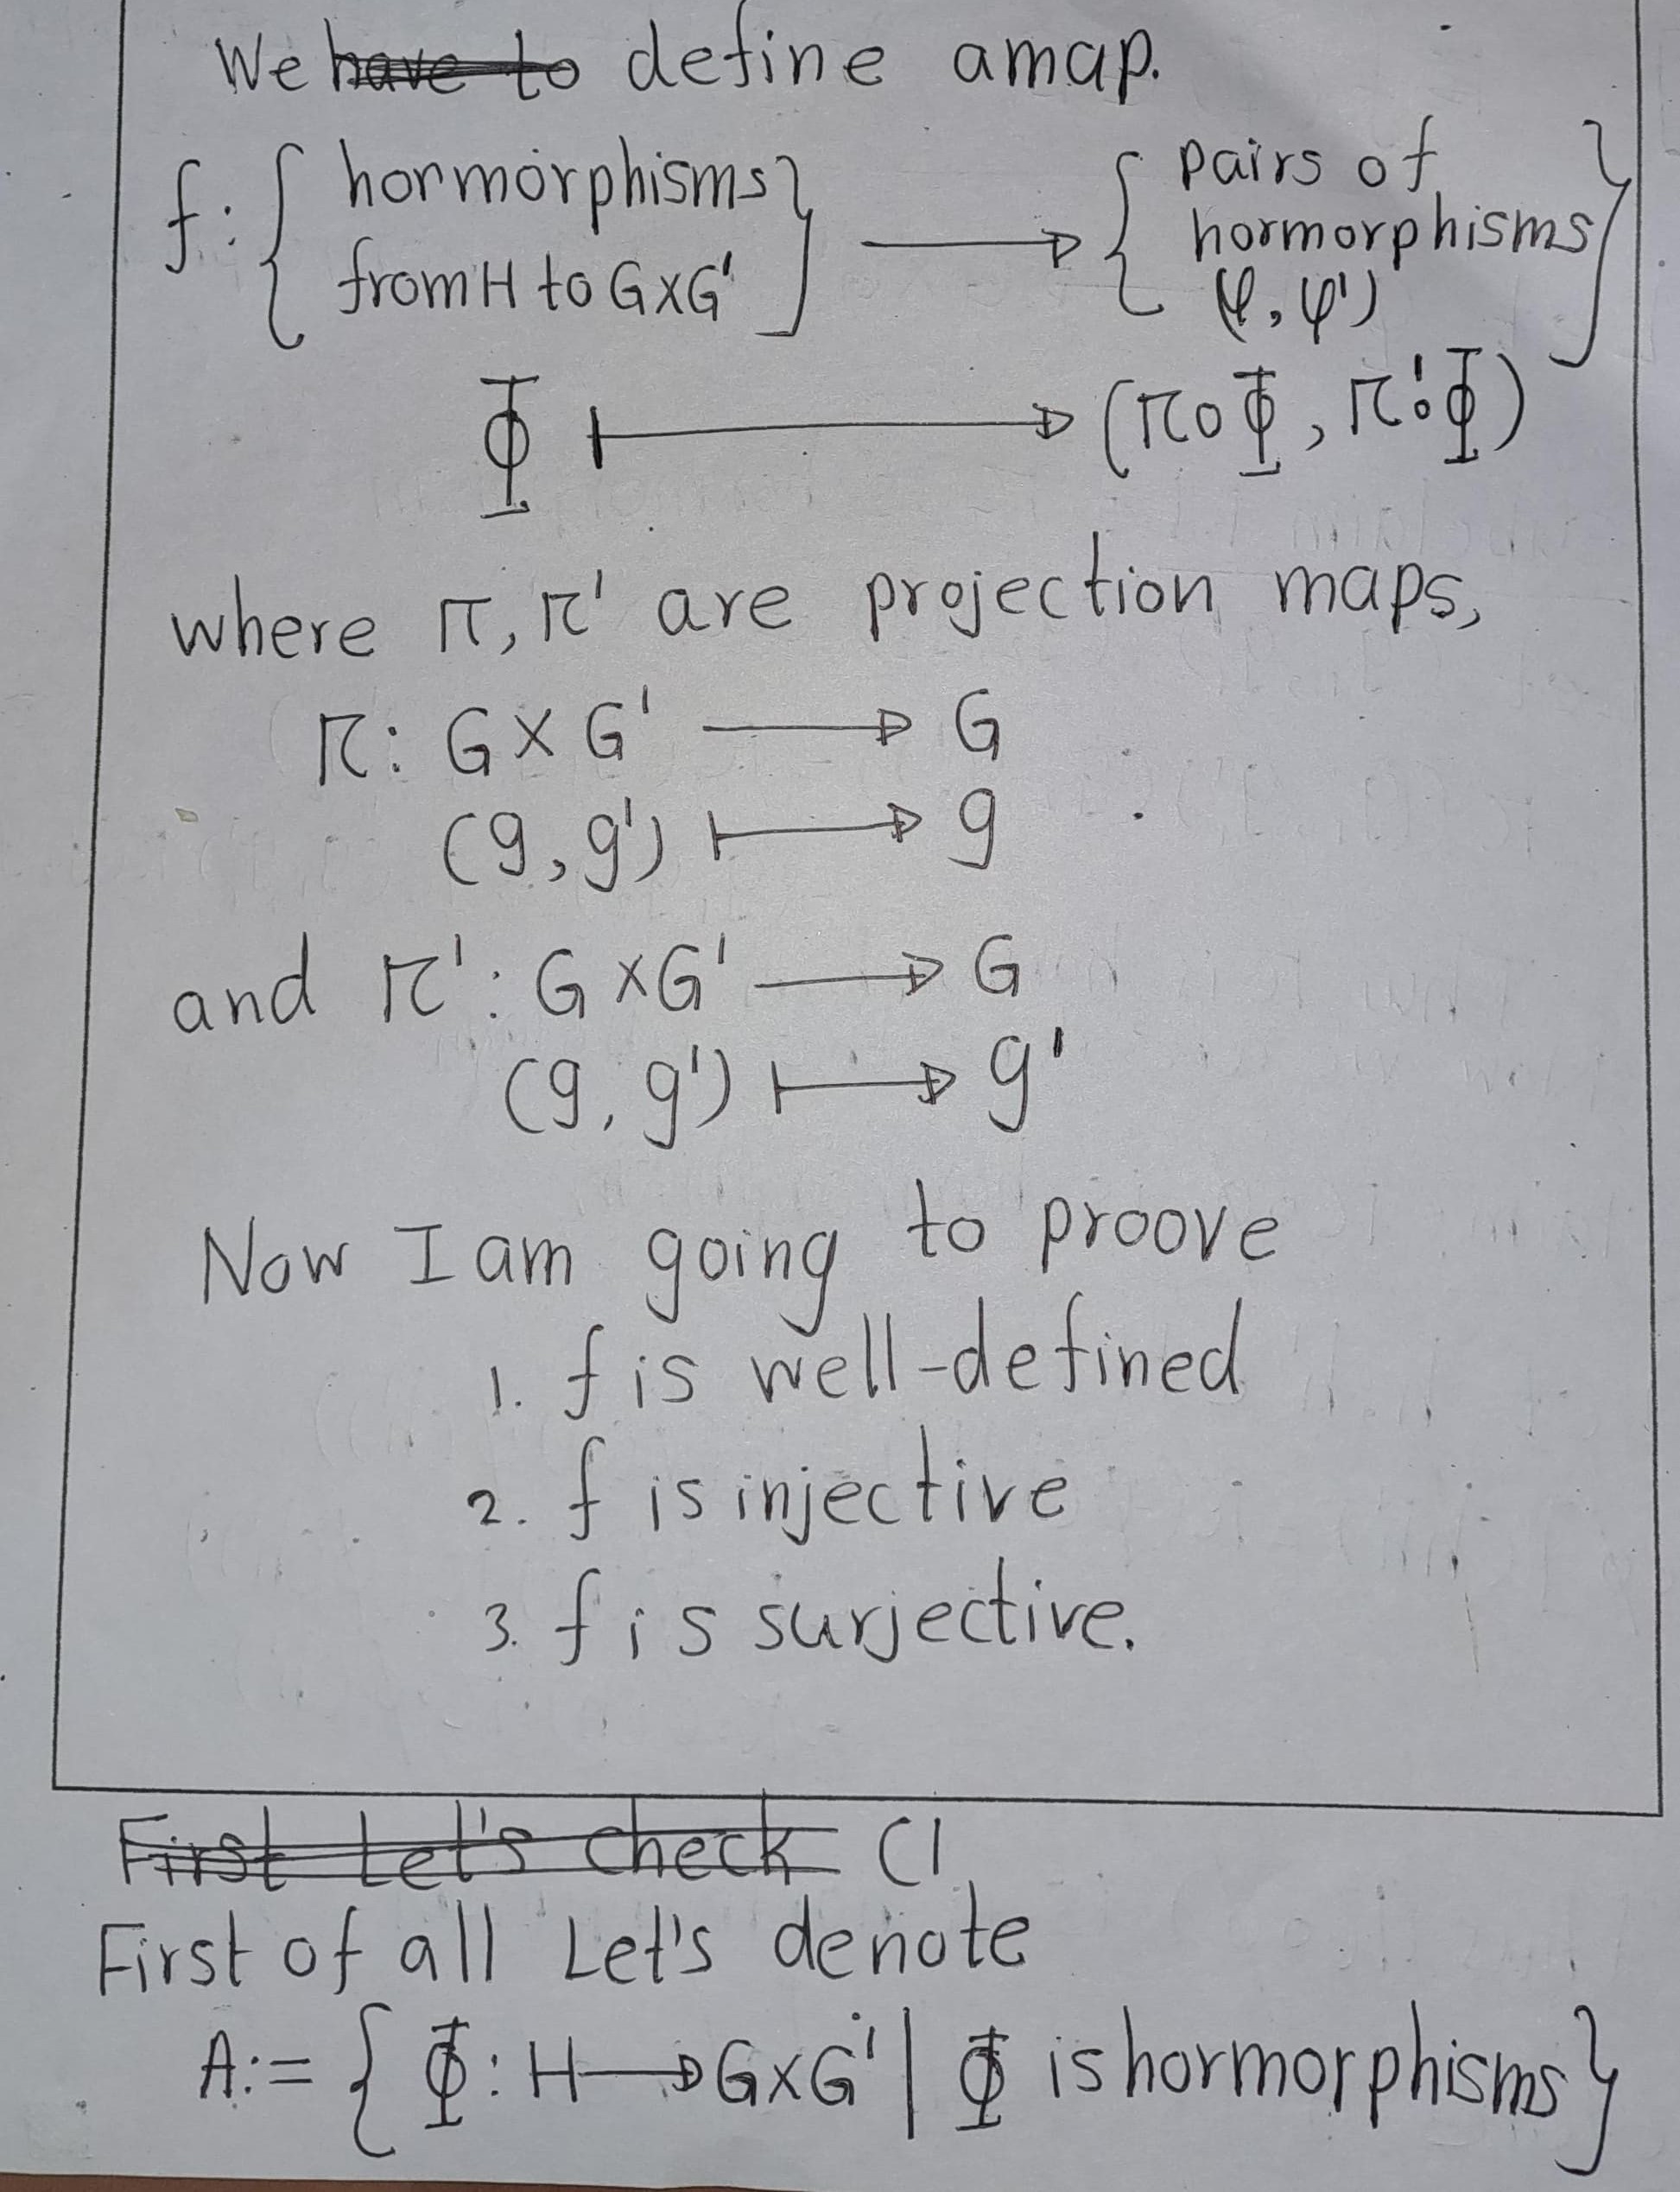 We have to define amap.
f: { hormorphisms from H to G×G' } ⟶ { pairs of hormorphisms (φ, φ') }
Φ ⟼ (π∘Φ, π'∘Φ)
where π, π' are projection maps,
π: G × G' ⟶ G
(g, g') ⟼ g
and π': G × G' ⟶ G
(g, g') ⟼ g'
Now I am going to proove
1. f is well-defined
2. f is injective
3. f is surjective.
First Let's check (1
First of all Let's denote
A:= { Φ: H ⟶ G×G' | Φ is hormorphisms }